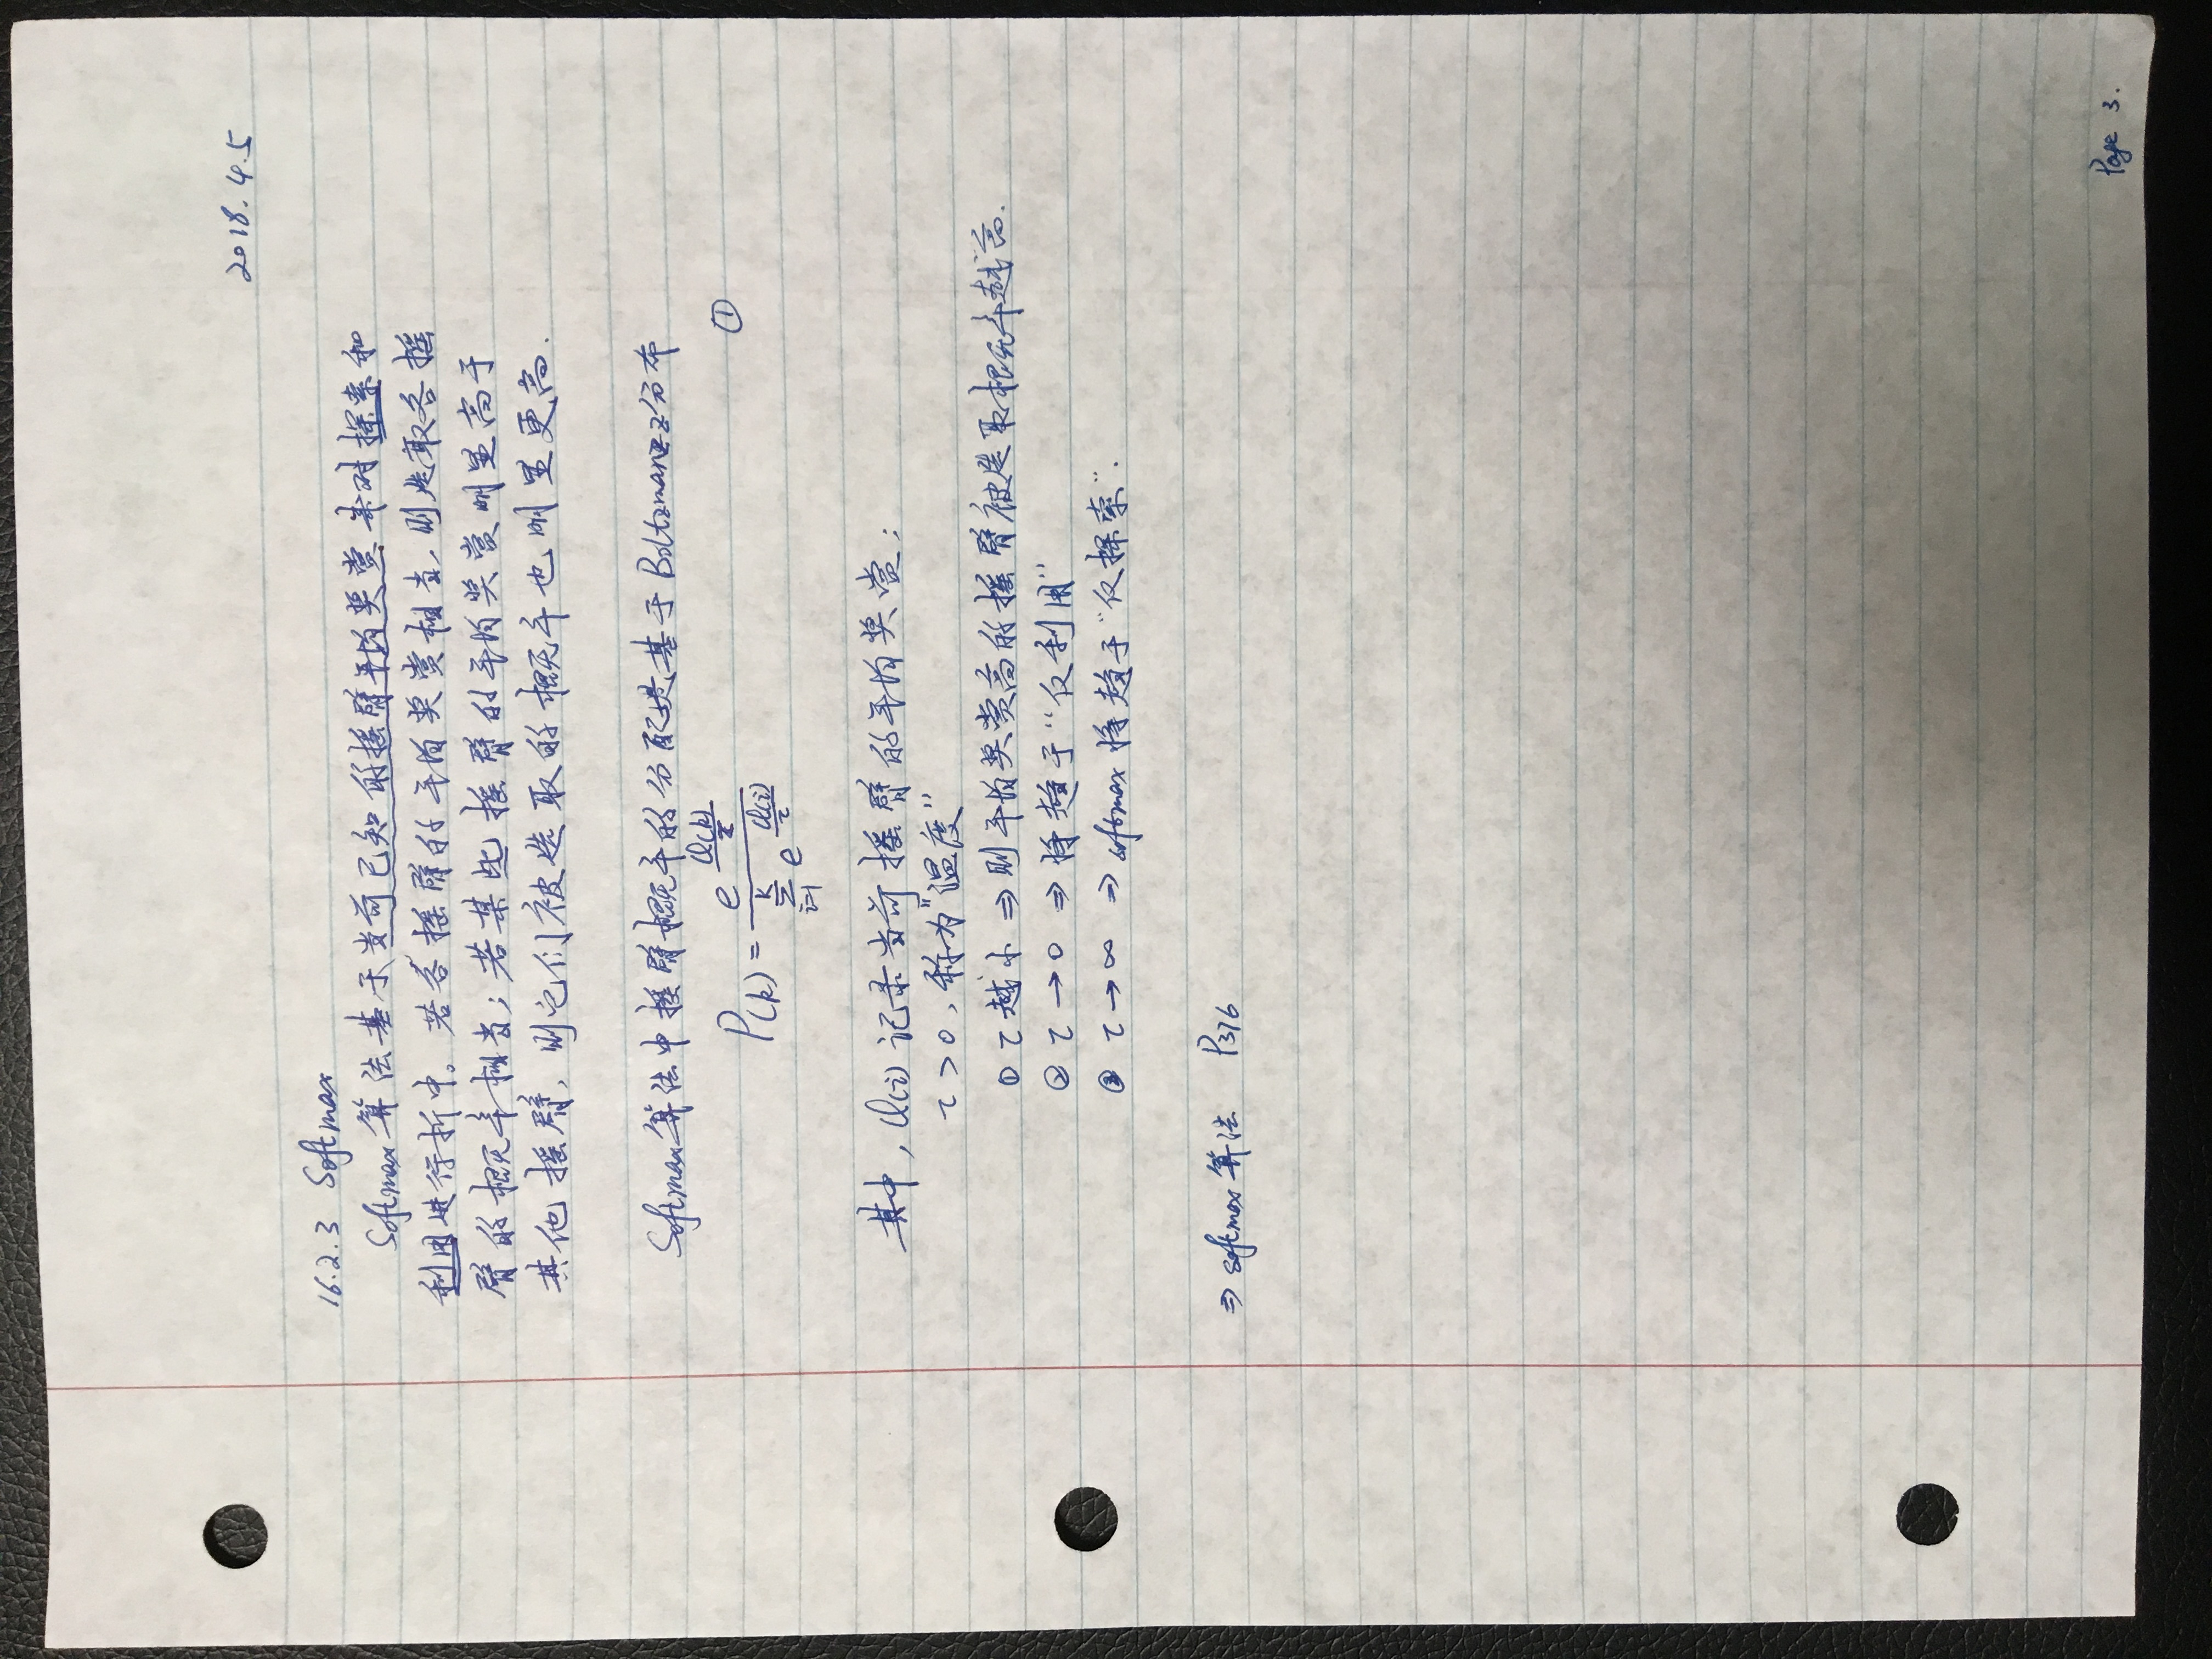 2018.4.5
16.2.3 Softmax
Softmax算法基于当前已知的摇臂平均奖赏来对探索和
利用进行折中。若各摇臂的平均奖赏相当,则选取各摇
臂的概率相当;若某些摇臂的平均奖赏明显高于
其他摇臂,则它们被选取的概率也明显更高.
Softmax算法中摇臂概率的分配是基于Boltzmanzz分布
P(k) = e^{Q(k)/τ} / Σ_{i=1}^{K} e^{Q(i)/τ} ①
其中,Q(i)记录当前摇臂的平均奖赏;
τ>0,称为"温度"
① τ越小 ⇒ 则平均奖赏高的摇臂被选取概率越高.
② τ→0 ⇒ 将趋于"仅利用"
③ τ→∞ ⇒ softmax将趋于"仅探索".
⇒ softmax算法 P376
Page 3.